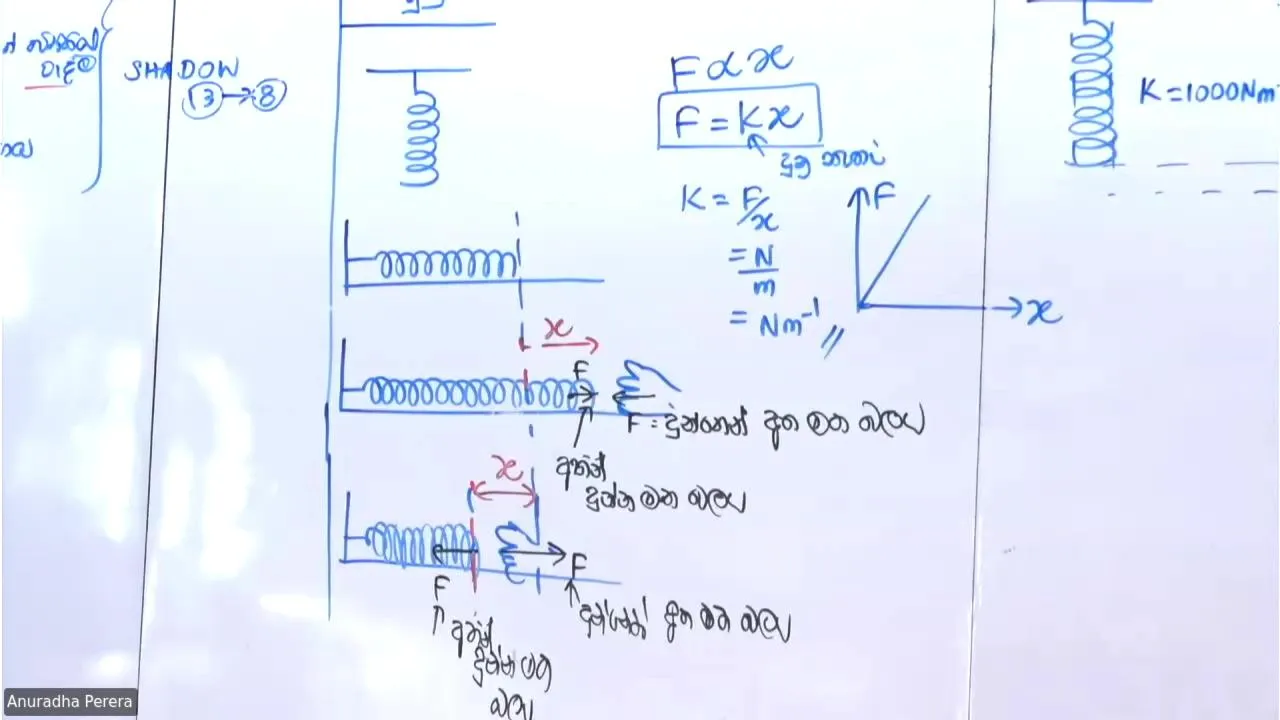 SHADOW
13 → 8
F ∝ x
F = Kx
දුනු නියතය
K = F/x
= N/m
= Nm⁻¹ //
F
x
x
F
F = දුන්නෙන් අත මත බලය
අතින්
දුන්න මත බලය
x
F
F
දුන්නෙන් අත මත බලය
අතින්
දුන්න මත
බලය
K = 1000Nm
Anuradha Perera